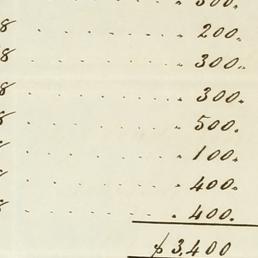 300.
8 . . . . . . 200.
8 . . . . . . 300.
8 . . . . . . 300.
8 . . . . . . 500.
. . . . . . 100.
. . . . . . 400.
8 . . . . . . 400.
$ 3,400